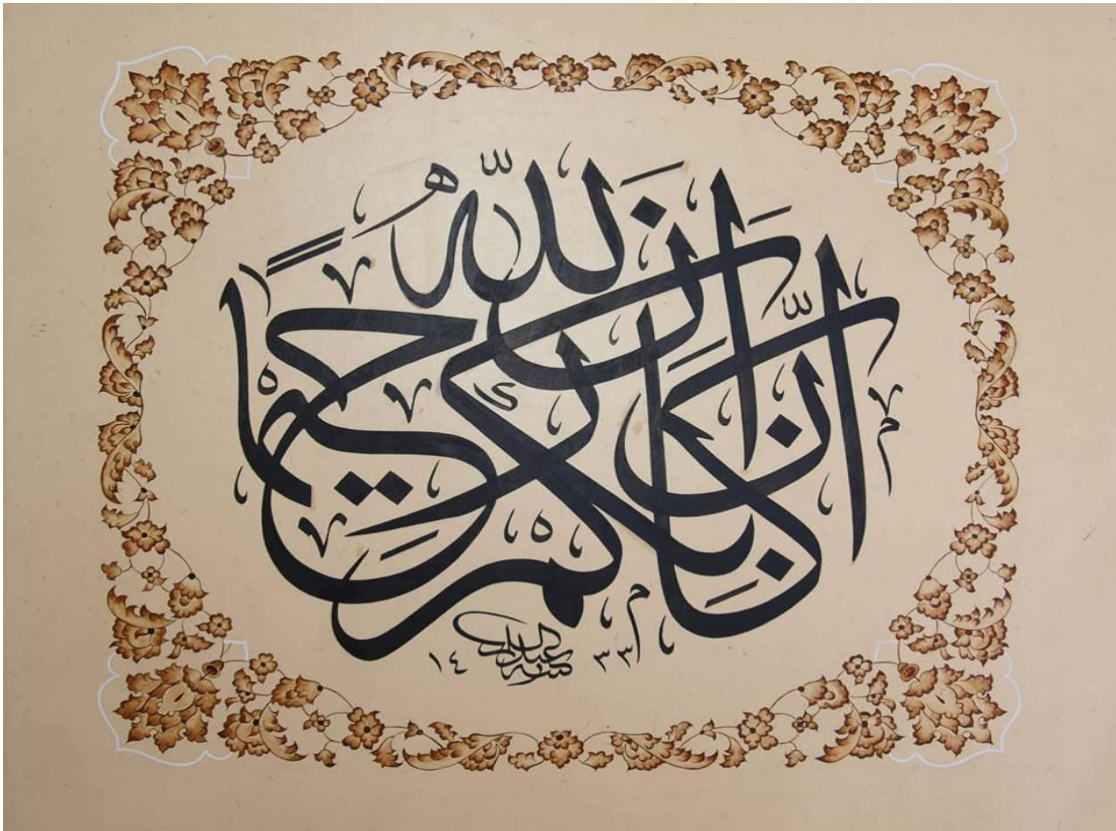 إِنَّ اللَّهَ كَانَ بِكُمْ رَحِيمًا
١٤٣٣